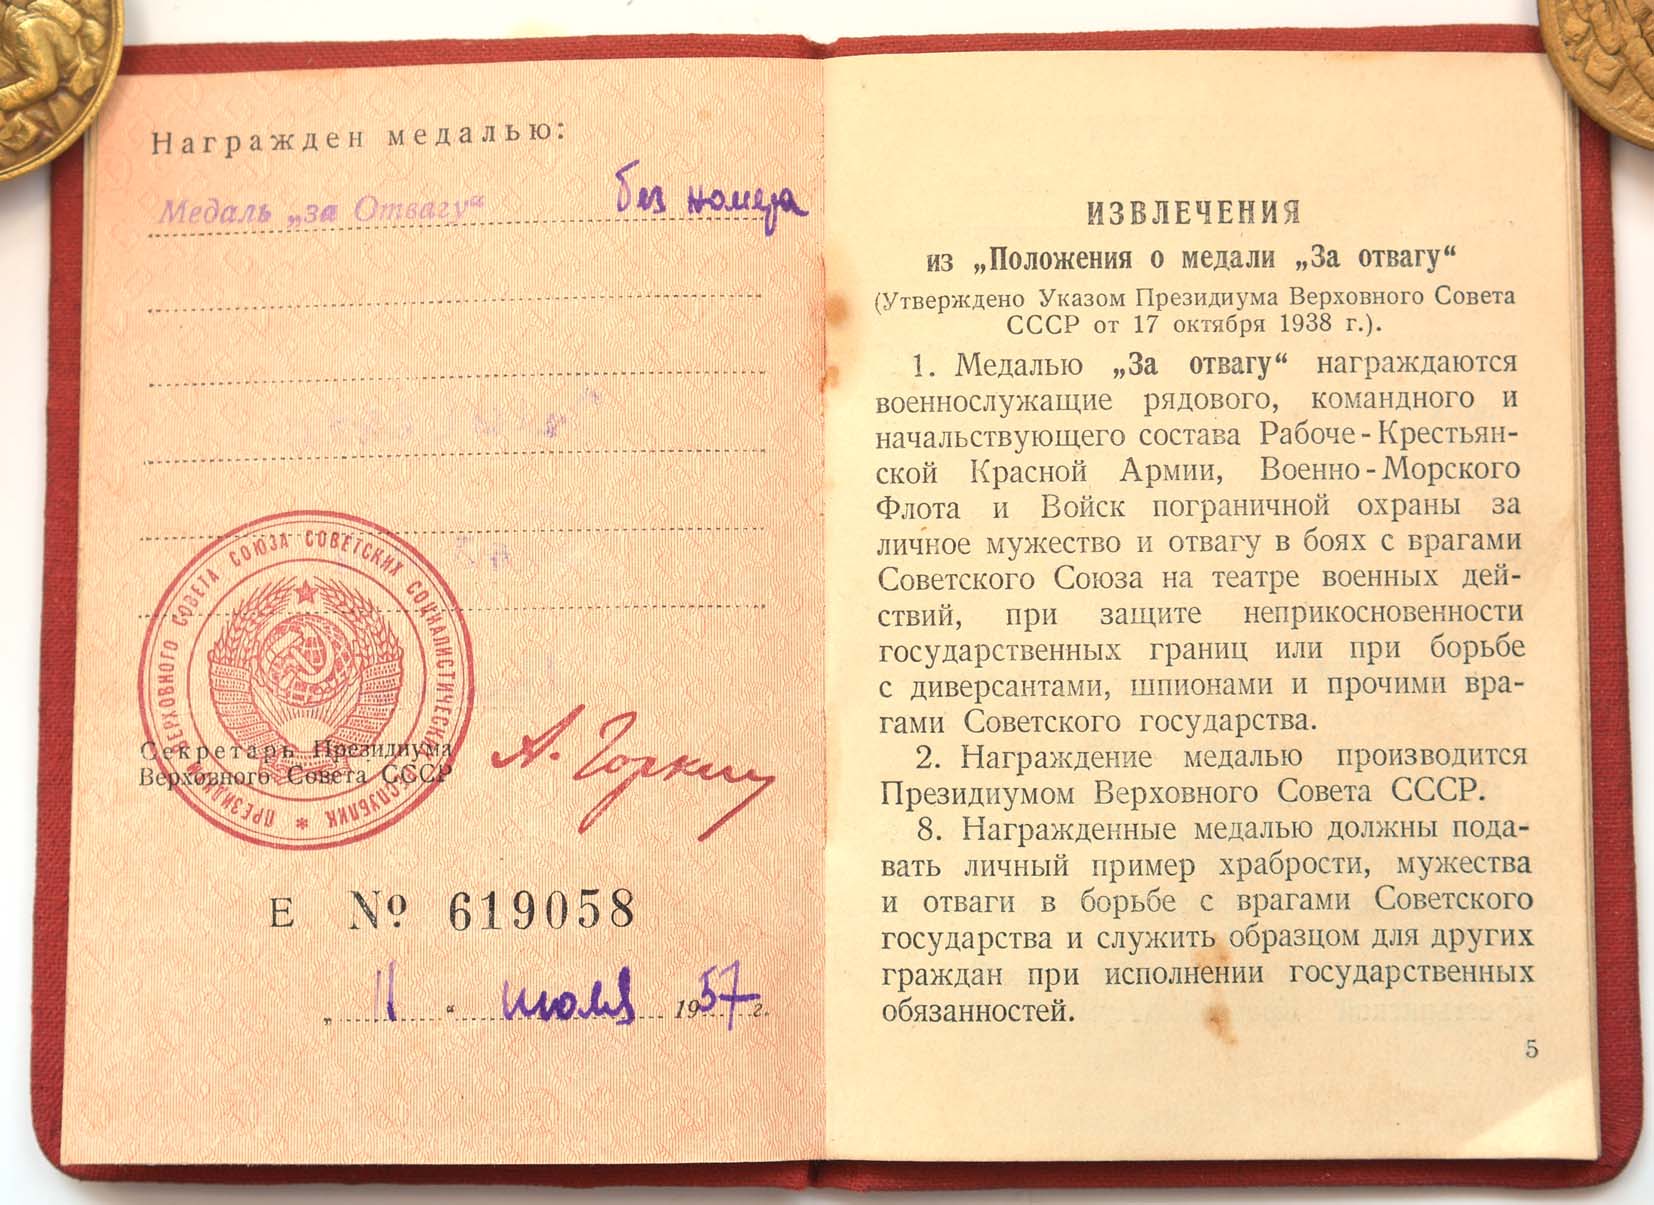 Награжден медалью:
Медаль „за Отвагу“ без номера
ПРЕЗИДИУМ ВЕРХОВНОГО СОВЕТА СОЮЗА СОВЕТСКИХ СОЦИАЛИСТИЧЕСКИХ РЕСПУБЛИК *
Секретарь Президиума
Верховного Совета СССР
А. Горкин
Е № 619058
„ 11 “ июля 1957 г.
ИЗВЛЕЧЕНИЯ
из „Положения о медали „За отвагу“
(Утверждено Указом Президиума Верховного Совета
СССР от 17 октября 1938 г.).
1. Медалью „За отвагу“ награждаются
военнослужащие рядового, командного и
начальствующего состава Рабоче-Крестьян-
ской Красной Армии, Военно-Морского
Флота и Войск пограничной охраны за
личное мужество и отвагу в боях с врагами
Советского Союза на театре военных дей-
ствий, при защите неприкосновенности
государственных границ или при борьбе
с диверсантами, шпионами и прочими вра-
гами Советского государства.
2. Награждение медалью производится
Президиумом Верховного Совета СССР.
8. Награжденные медалью должны пода-
вать личный пример храбрости, мужества
и отваги в борьбе с врагами Советского
государства и служить образцом для других
граждан при исполнении государственных
обязанностей.
5